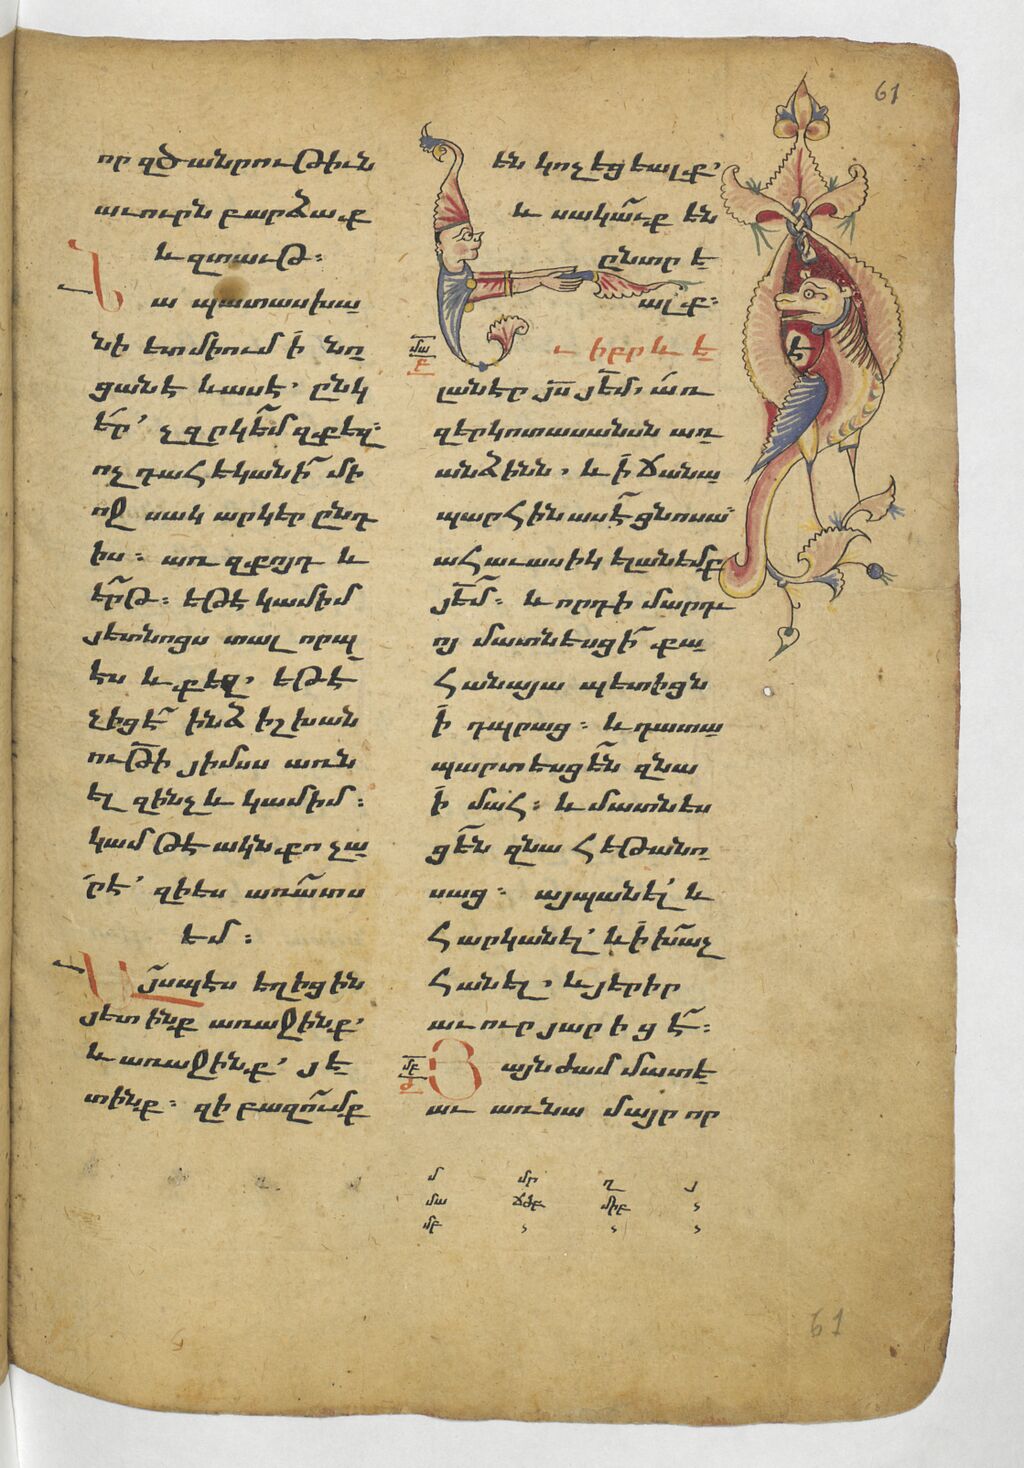 61
որ զծանրութիւն
աւուրն բարձաք
և զտաւթ։
Նա պատասխա
նի ետ միում ի նո
ցանէ և ասէ՛ ընկ
եր՛ չզրկեմ զքեզ։
ոչ դահեկանի մի
ոջ սակ արկեր ընդ
իս։ առ զքոյդ և
երթ։ եթէ կամիմ
յետնոցս տալ որպ
ես և քեզ՛ եթէ
չիցէ ինձ իշխան
ութի յիմսս առն
ել զինչ և կամիմ։
կամ թէ ակն քո չա
ր է՛ զի ես առատս
եմ։
Այսպես եղիցին
յետինք առաջինք՛
և առաջինք՛ յե
տինք։ զի բազումք
են կոչեցեալք՛
և սակաւք են
ընտրե
ալք։
մա
բ
Եւ իբրև ե
լաներ յս յեմ, առ
զերկոտասանսն առ
անձինն, և ի ճանա
պարհին ասէ ցնոսա՝
ահաւասիկ ելանեմք
յեմ։ և որդի մարդ
ոյ մատնեսցի քա
հանայապետիցն
ի դպրաց։ և դատա
պարտեսցեն զնա
ի մահ։ և մատնես
ցեն զնա հեթանո
սաց։ այպանել՛ և
հարկանել՛ և ի խաչ
հանել, և յերիր
աւուր յարիցէ։
մբ
ժ
Յայնժամ մատե
աւ առ նա մայր որ
մ մր ղ յ
մա ճժբ միբ
մբ
61